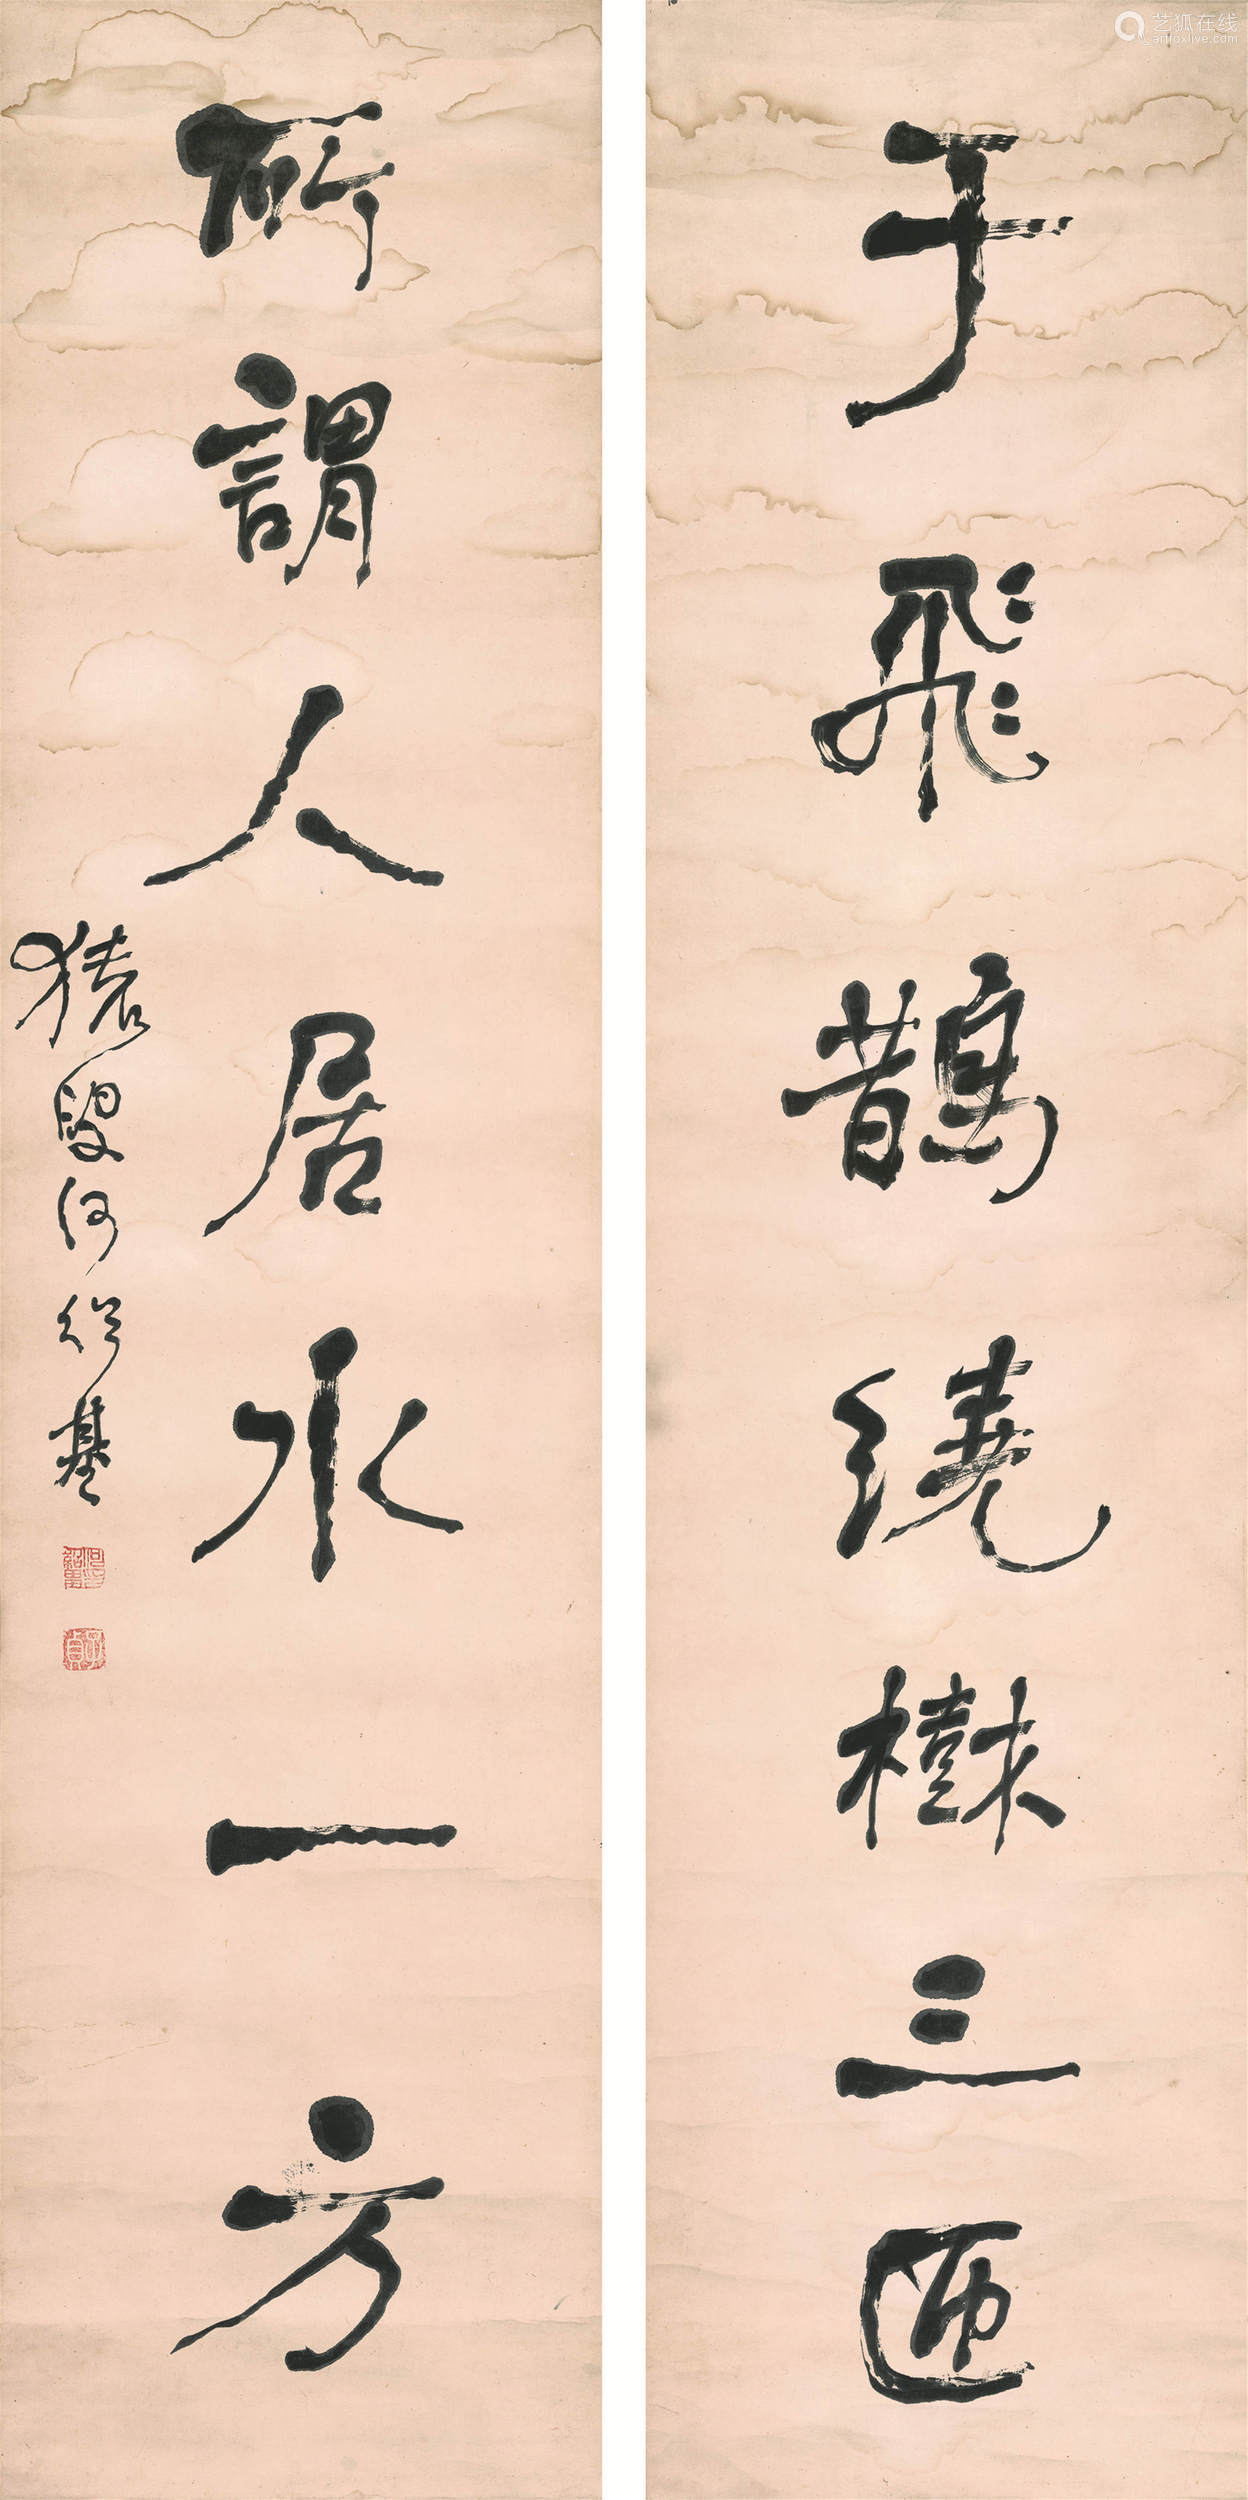 于飛鵲繞樹三匝
所謂人居水一方
猿叟何紹基
艺狐在线
artfoxlive.com